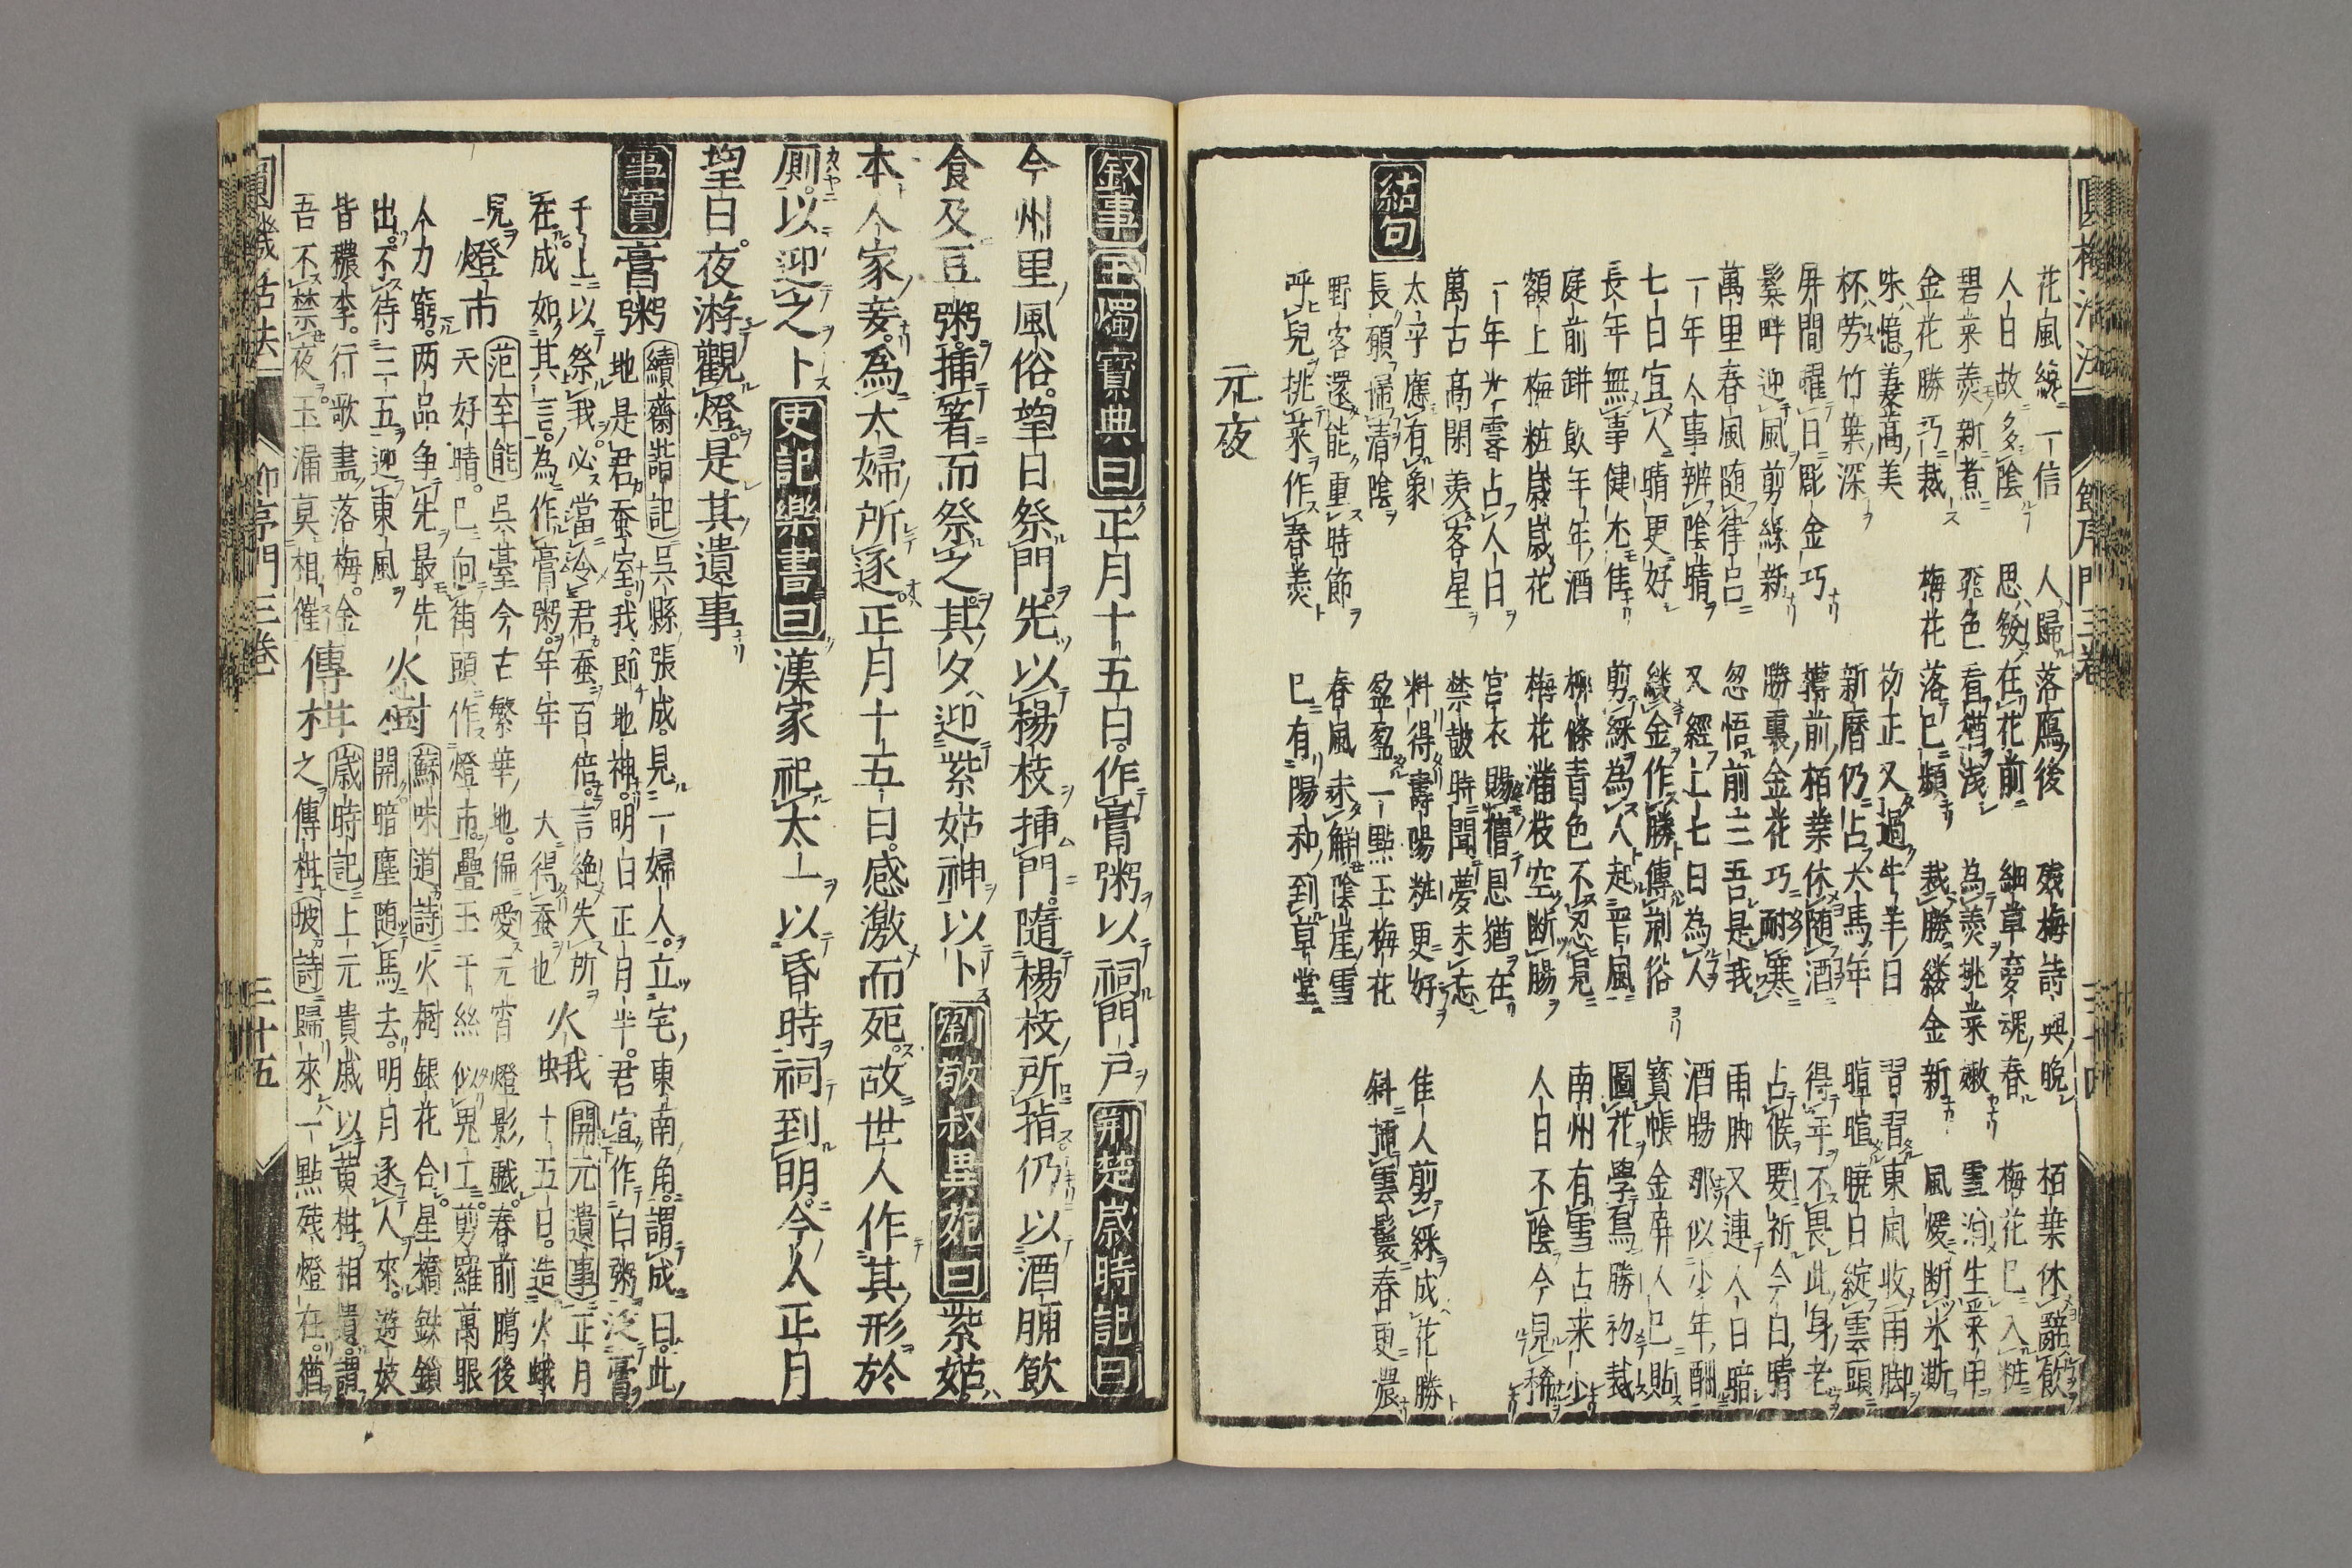 花風繞一信　人歸落鴈後　殘梅詩興晚　栢葉休辭飲
人日故多陰　思發在花前　細草夢魂春　梅花已入粧
碧菜羨新煮　飛色看猶淺　為羨挑菜嫩　雪消生菜甲
金花勝巧裁　梅花落已頻　裁勝縷金新　風煖断氷澌
味憶蔞蒿美　初正又過牛羊日　習習東風收雨脚
杯労竹葉深　新曆仍占犬馬年　暄暄曉日綻雲頭
屏間曜日彫金巧　罇前栢葉休随酒　得平不畏此身老
鬓畔迎風剪綵新　勝裏金花巧耐寒　占候要祈今日晴
萬里春風随律呂　忽悟前三吾是我　雨脚又連人日暗
一年人事辨陰晴　又經上七日為人　酒腸那似少年酣
七日宜人晴更好　縷金作勝傳荊俗　寳帳金屏人已貼
長年無事健尤佳　剪綵為人起晉風　圖花學鳥勝初裁
庭前缾飲年年酒　柳條青色不忍見　南州有雪古来少
額上梅粧歳歳花　梅花滿枝空断腸　人日不陰今見稀
結句
一年光霽占人日　宮衣賜襠恩猶在
萬古高閑羨客星　禁鼓時聞夢未忘
太平應有象　料得壽陽粧更好　佳人剪綵成花勝
長願帰清陰　盈盈一點玉梅花　斜插雲鬟春更濃
野客還能重時節　春風未解陰崖雪
呼兒挑菜作春羨　已有陽和到草堂
元夜
叙事　玉燭寳典曰　正月十五日。作膏粥以祠門戸　荊楚歳時記曰
今州里風俗。望日祭門。先以楊枝挿門。隨楊枝所指仍以酒脯飲
食及豆粥。挿箸而祭之。其夕迎紫姑神以卜　劉敬叔異苑曰　紫姑
本人家妾。為大婦所逐。正月十五日。感激而死。故世人作其形於
厠。以迎之卜　史記樂書曰　漢家祀太一以昏時祠到明。今人正月
望日。夜游觀燈。是其遺事
事實　膏粥　續齊諧記　呉縣張成。見一婦人。立宅東南角。謂成曰。此
地是君蚕室。我即地神。明日正月半。君宜作白粥泛膏
千上以祭我。必當令君蚕百倍。言絶失所
在。成如其言。為作膏粥。年年大得蚕也　火蛾　開元遺事　正月
十五日。造火蛾
見燈市　范至能　呉臺今古繁華地。偏愛元宵燈影戲。春前臈後
天好晴。已向街頭作燈市。疊玉千絲似鬼工。剪羅萬眼
人力窮。両品争先最先
出。不待三五迎東風　火樹　蘇味道詩　火樹銀花合。星橋鉄鎖
開。暗塵随馬去。明月逐人來。遊妓
皆穠李。行歌盡落梅。金
吾不禁夜。玉漏莫相催　傳柑　歳時記　上元貴戚以黄柑相遺。謂
之傳柑　坡詩　歸來一點残燈在。猶
圓機活法　節序門三巻　三十五